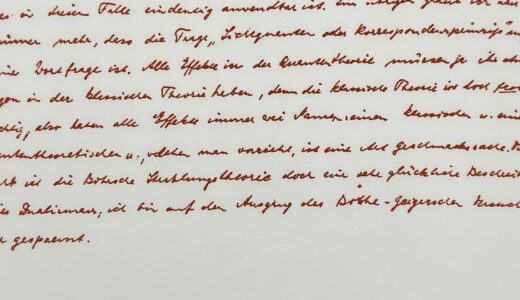 in diesem Falle eindeutig anwendbar ist. Im übrigen glaub ich aber
immer mehr, dass die Frage „Lichtquanten oder Korrespondenzprinzip"
eine Wortfrage ist. Alle Effekte in der Quantentheorie müssen ja ihr
in der klassischen Theorie haben, denn die klassische Theorie ist doch fast
richtig, also haben alle Effekte immer zwei Namen, einen klassischen u. einen
quantentheoretischen u., welchen man vorzieht, ist eine Art Geschmackssache.
ist die Bohrsche Strahlungstheorie doch eine sehr glückliche
Dualismus; ich bin auf den Ausgang des Bothe-Geigerschen
gespannt.